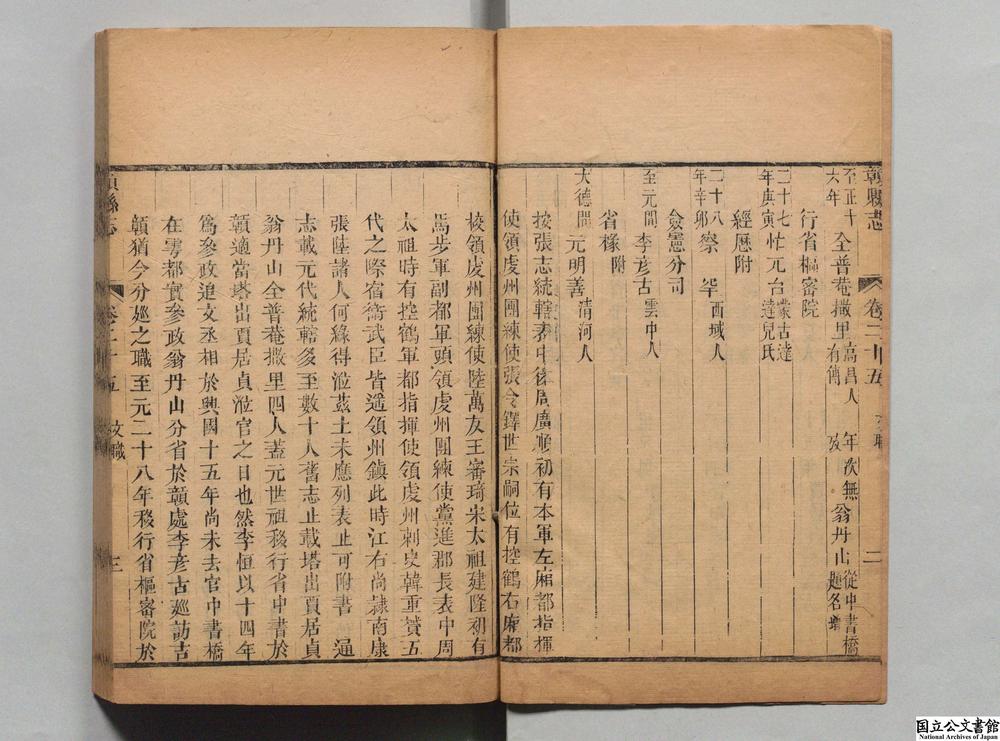 贛縣志 卷二十五 文職 二
至正十六年 全普菴撒里 高昌人有傳 年次無攷 翁丹山 從中書橋題名增
行省樞審院
二十七年庚寅 忙元台 蒙古達達兒氏
經歷附
二十八年辛卯 察罕 西域人
僉憲分司
至元間 李彥古 雲中人
省椽附
大德間 元明善 清河人
按張志統轄表中後周廣順初有本軍左廂都指揮
使領虔州團練使張令鐸世宗嗣位有控鶴右廂都
校領虔州團練使陸萬友王審琦宋太祖建隆初有
馬步軍副都軍頭領虔州團練使黨進郡長表中周
太祖時有控鶴軍都指揮使領虔州刺史韓重贇五
代之際宿衛武臣皆遥領州鎮此時江右尚隷南康
張陸諸人何緣得涖茲土未應列表止可附書 通
志載元代統轄多至數十人舊志止載塔出賈居貞
翁丹山全普菴撒里四人蓋元世祖移行省中書於
贛適當塔出賈居貞涖官之日也然李恒以十四年
爲參政追文丞相於興國十五年尚未去官中書橋
在雩都實參政翁丹山分省於贛處李彥古廵訪古
贛猶今分廵之職至元二十八年移行省樞審院於
贛縣志 卷二十五 文職 三
国立公文書館
National Archives of Japan